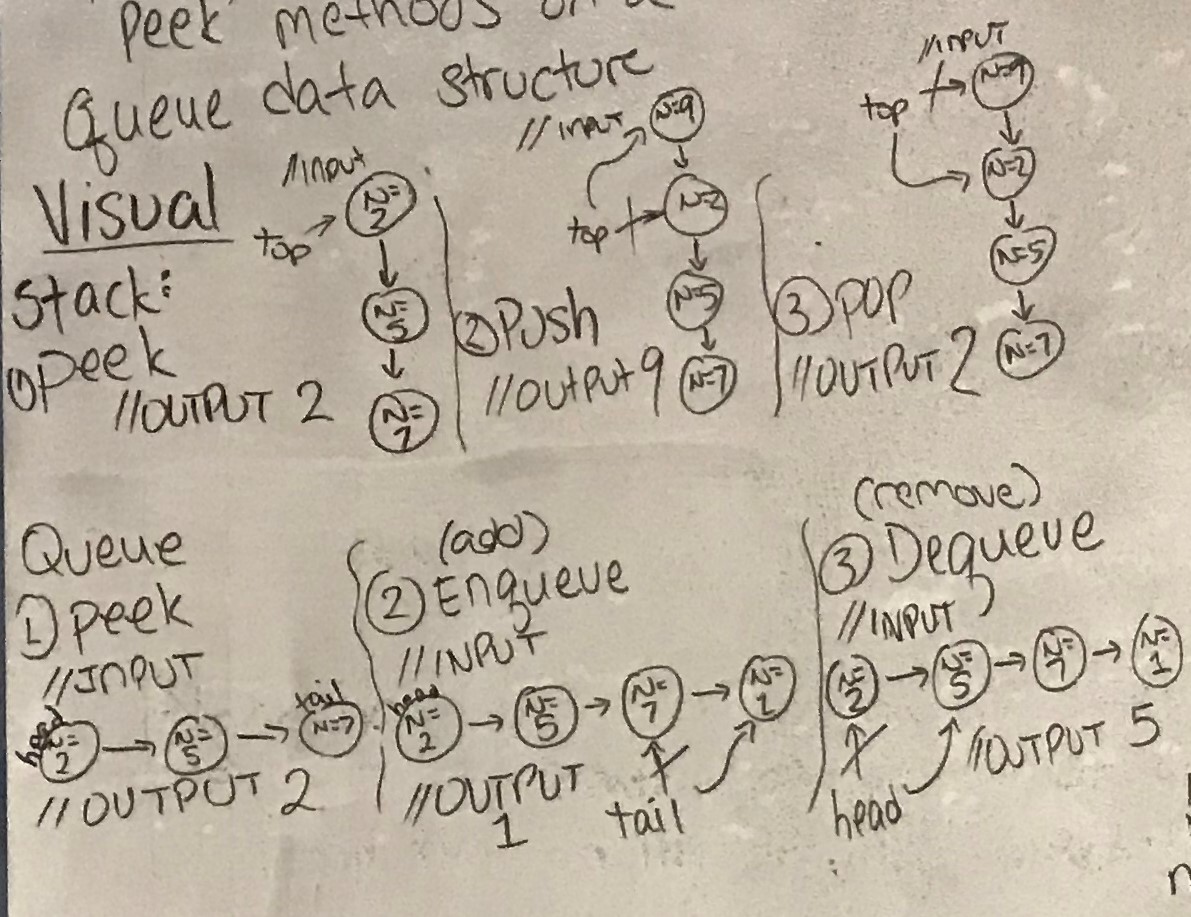 Peek methods on a
Queue data structure
Visual
Stack:
① peek
//Input
top
N=2
N=5
N=7
//OUTPUT 2
② Push
//INPUT
N=9
top
N=2
N=5
N=7
//OUtPut 9
③ pop
//INPUT
top
N=9
N=2
N=5
N=7
//OUTPUT 2
Queue
1) peek
//INPUT
head
N=2
N=5
tail
N=7
//OUTPUT 2
(add)
② Enqueue
//INPUT
head
N=2
N=5
N=7
N=1
//OUTPUT
1
tail
(remove)
③ Dequeue
//INPUT
N=2
N=5
N=7
N=1
head
//OUTPUT 5